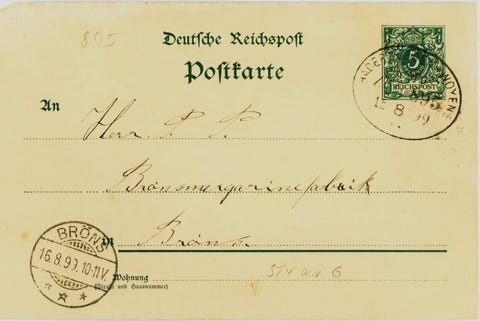 895
Deutsche Reichspost
Postkarte
5
REICHSPOST
An
Herr P. P.
Brönsmargarinefabrik
in Bröns
BRÖNS
16.8.99.10-11V.
Wohnung
(Straße und Hausnummer)